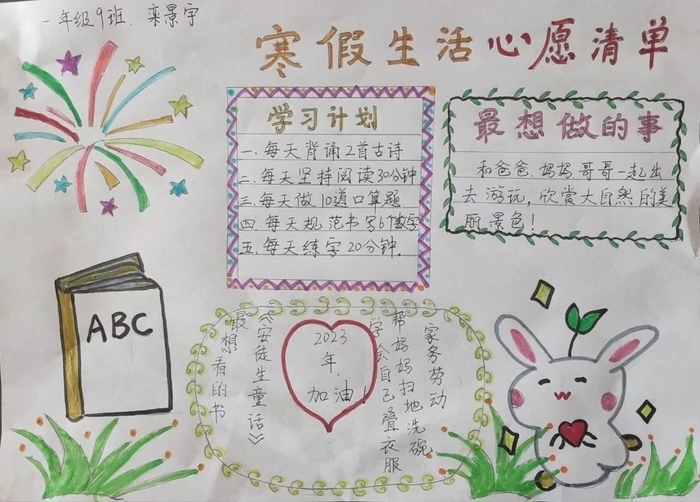 一年级9班 栾景宇
寒假生活心愿清单
学习计划
一.每天背诵2首古诗
二.每天坚持阅读30分钟
三.每天做10道口算题
四.每天规范书写6个数字
五.每天练字20分钟.
最想做的事
和爸爸、妈妈、哥哥一起出
去游玩,欣赏大自然的美
丽景色!
ABC
最想看的书
《安徒生童话》
2023
年,
加油!
家务劳动
帮妈妈扫地洗碗
学会自己叠衣服